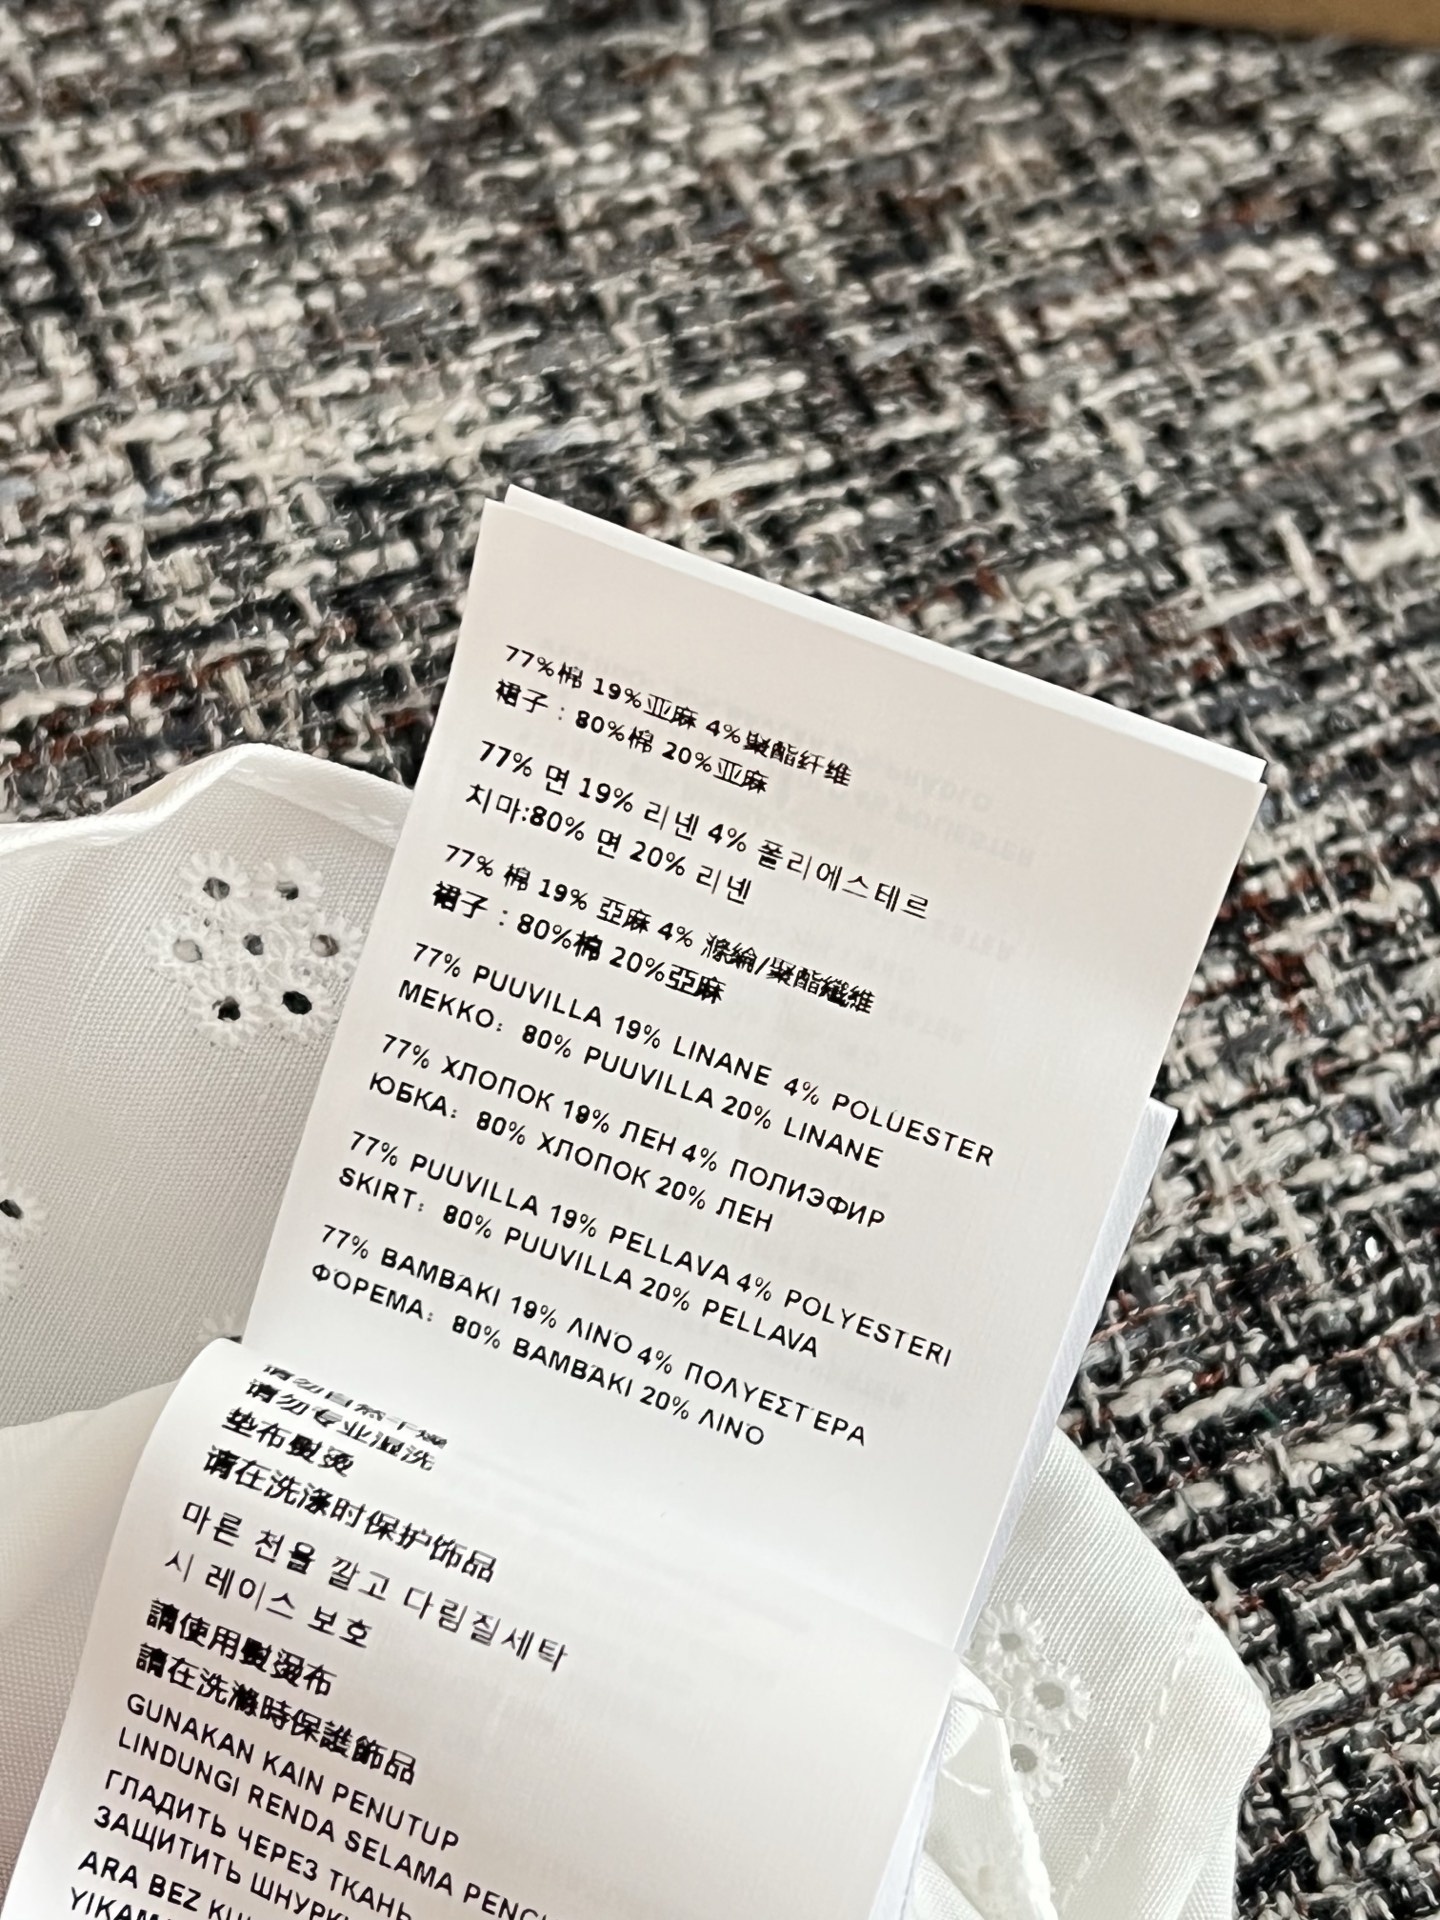 77%棉 19%亚麻 4%聚酯纤维
裙子：80%棉 20%亚麻
77% 면 19% 리넨 4% 폴리에스테르
치마:80% 면 20% 리넨
77% 棉 19% 亞麻 4% 滌綸/聚酯纖維
裙子：80%棉 20%亞麻
77% PUUVILLA 19% LINANE 4% POLUESTER
MEKKO: 80% PUUVILLA 20% LINANE
77% ХЛОПОК 19% ЛЕН 4% ПОЛИЭФИР
ЮБКА: 80% ХЛОПОК 20% ЛЕН
77% PUUVILLA 19% PELLAVA 4% POLYESTERI
SKIRT: 80% PUUVILLA 20% PELLAVA
77% ΒΑΜΒΆΚΙ 19% ΛΙΝΌ 4% ΠΟΛΥΕΣΤΈΡΑ
ΦΌΡΕΜΑ: 80% ΒΑΜΒΆΚΙ 20% ΛΙΝΌ
请勿专业湿洗
垫布熨烫
请在洗涤时保护饰品
마른 천을 깔고 다림질세탁
시 레이스 보호
請使用熨燙布
請在洗滌時保護飾品
GUNAKAN KAIN PENUTUP
LINDUNGI RENDA SELAMA
ГЛАДИТЬ ЧЕРЕЗ ТКАНЬ
ЗАЩИТИТЬ
ARA BEZ